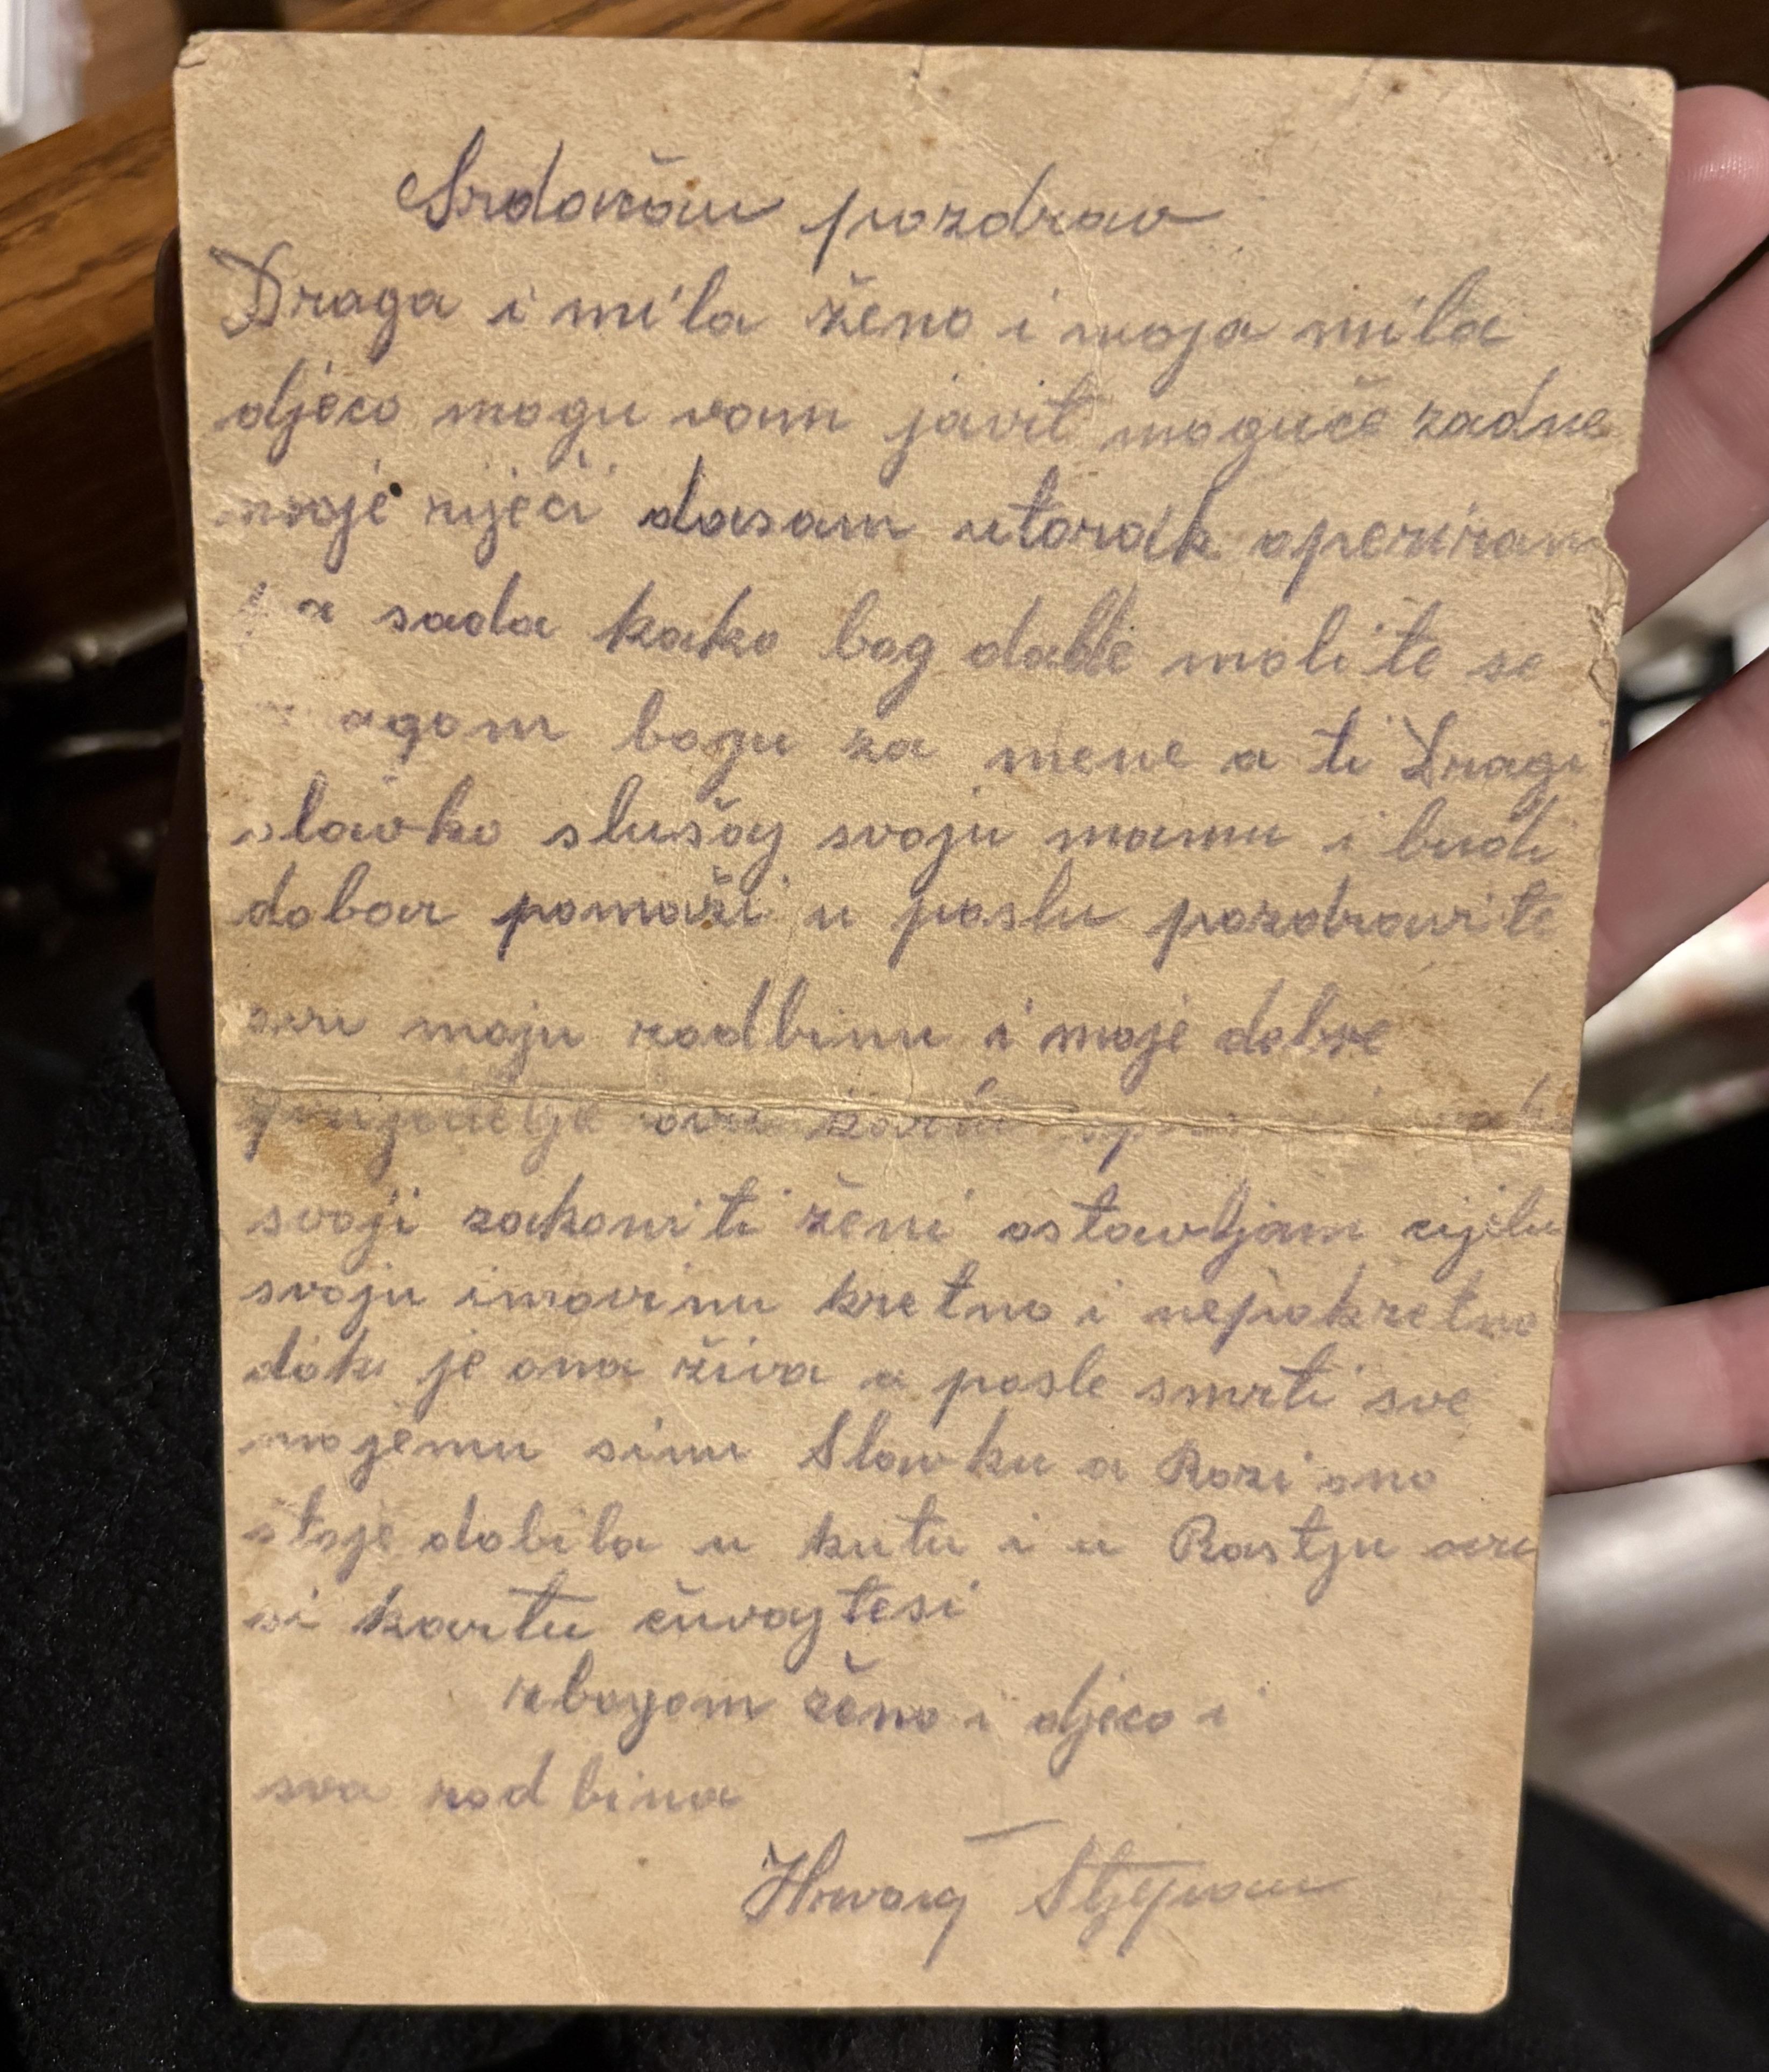 Srdačan pozdrav
Draga i mila ženo i moja mila
djeco mogu vam javit moguće zadne
moje riječi dasam utorak operiran
pa sada kako bog dade molite se
dragom bogu za mene a ti Dragi
slavko slušaj svoju mamu i budi
dobar pomaži u poslu pozdravite
svu moju rodbinu i moje dobre
prijatelje
svoji zakoniti ženi ostavljam cijelu
svoju imovinu kretno i nepokretno
dok je ona živa a posle smrti sve
mojemu sinu Slavku a Rozi ono
štoje dobila u kutu i u Rastju
si kartu čuvajtesi
zbogom ženo i djeco i
sva rodbina
Horvaj Stjepan